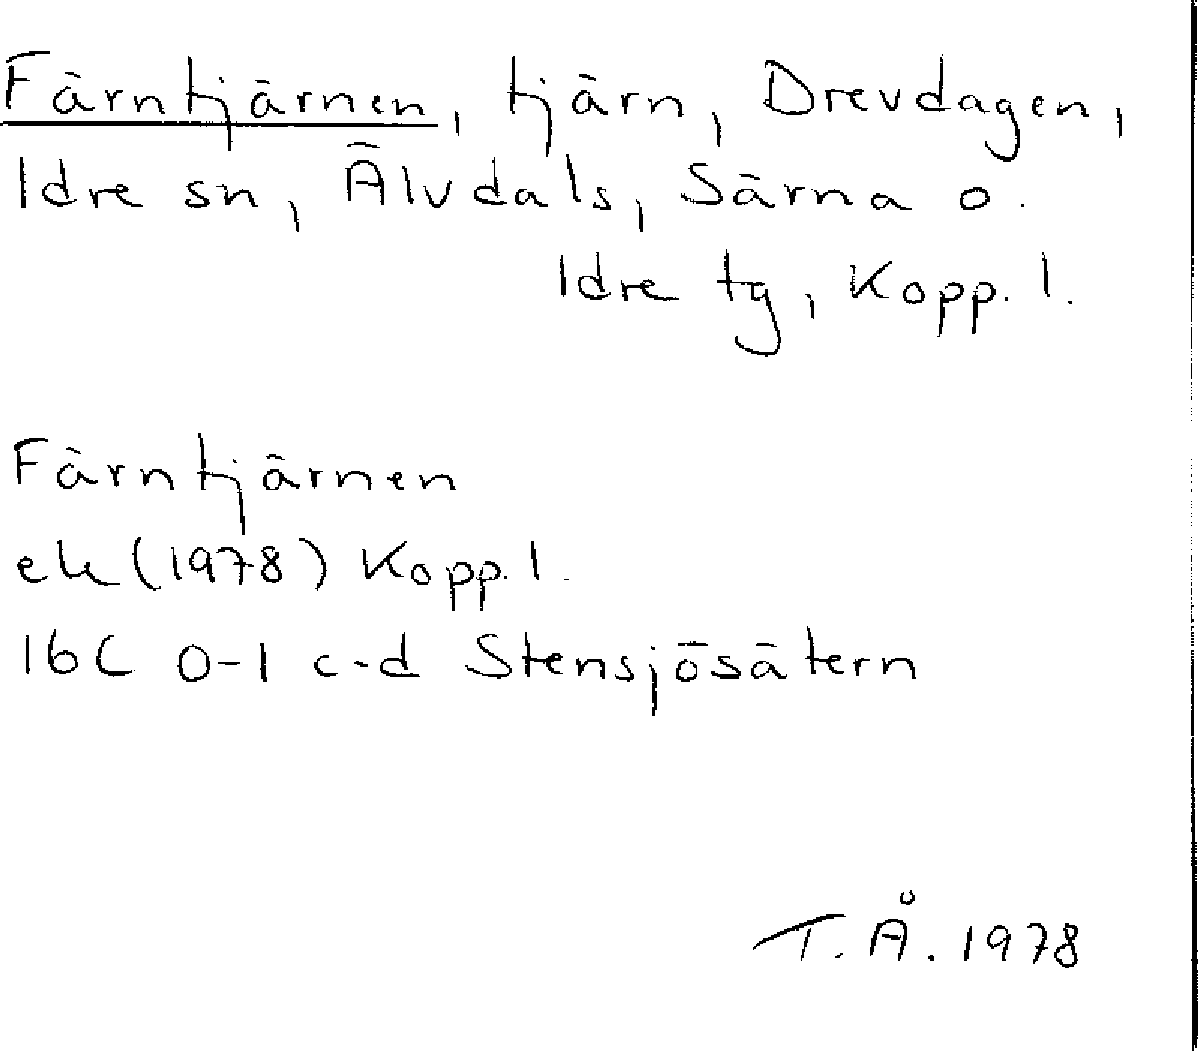 Färntjärnen, tjärn, Drevdagen,
Idre sn, Älvdals, Särna o.
Idre tg, Kopp. l.
Färntjärnen
ek (1978) Kopp. l.
16C 0-1 c-d Stensjösätern
T. Å. 1978